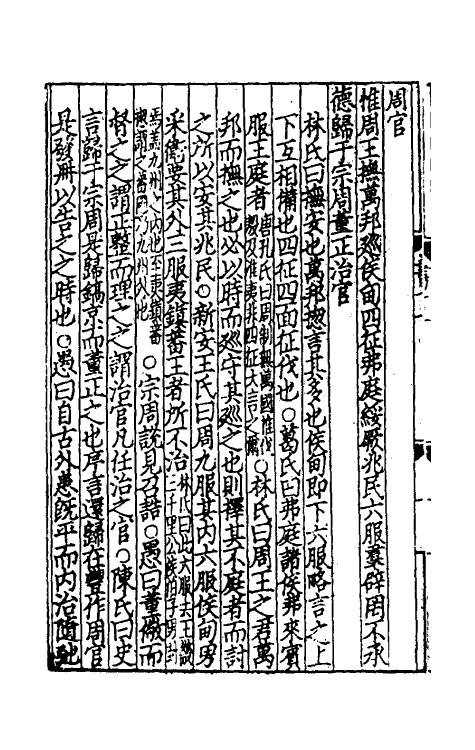 周官
惟周王撫萬邦廵侯甸四征弗庭綏厥兆民六服羣辟罔不承
德歸于宗周董正治官
林氏曰撫安也萬邦緫言其多也侯甸即下六服略言之上
下互相備也四征四面征伐也○葛氏曰弗庭諸侯弗來賓
服王庭者唐孔氏曰周制無萬國惟伐淮夷非四征大言之爾○林氏曰周王之君萬
邦而撫之也必以時而廵守其廵之也則擇其不庭者而討
之所以安其兆民○新安王氏曰周九服其内六服侯甸男
采衛要其外三服夷鎮蕃王者所不治林氏曰此六服去王畿三千里公侯伯子男封
焉蓋九州之内也至夷鎮蕃總謂之蕃國乃九州外也○宗周説見召誥○愚曰董嚴而
督之之謂正整而理之之謂治官凡任治之官○陳氏曰史
言歸于宗周是歸鎬京而董正之也序言還歸在豐作周官
是發册以告之之時也○愚曰自古外患既平而内治隨弛